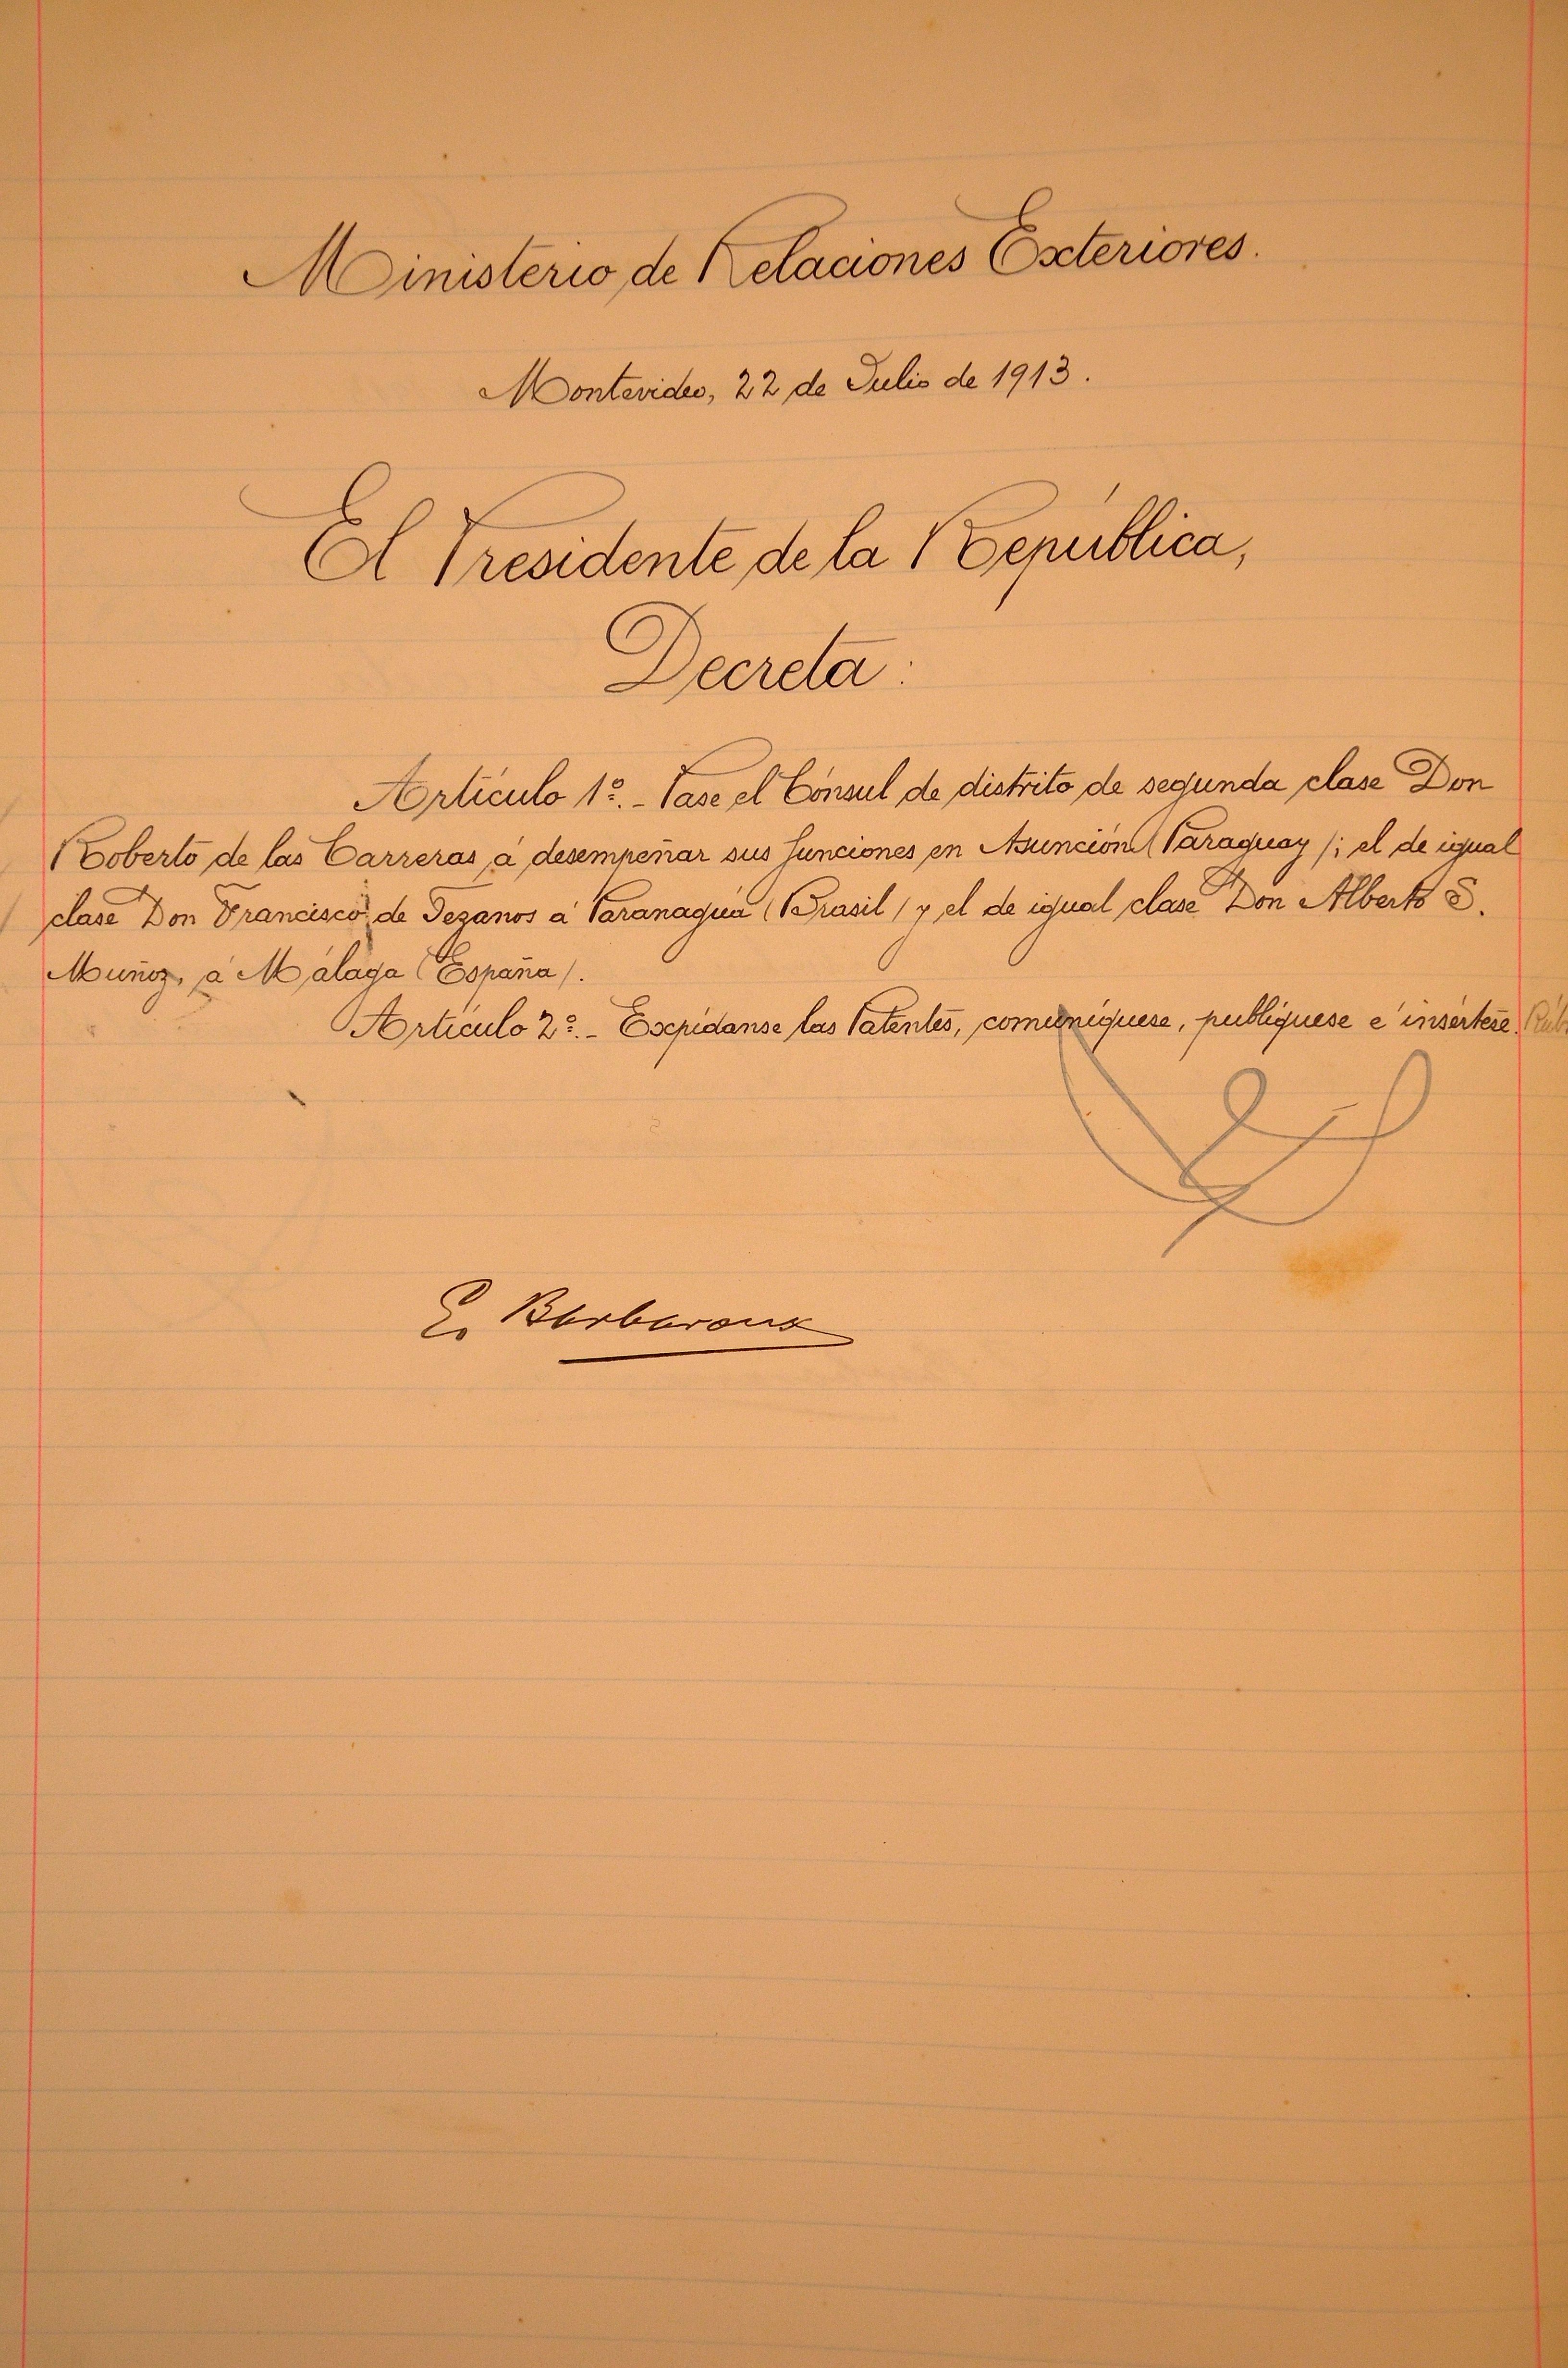 Ministerio de Relaciones Exteriores.
Montevideo, 22 de Julio de 1913.
El Presidente de la República,
Decreta:
Artículo 1º.- Pase el Cónsul de distrito de segunda clase Don
Roberto de las Carreras á desempeñar sus funciones en Asunción (Paraguay); el de igual
clase Don Francisco de Tezanos á Paranaguá (Brasil) y el de igual clase Don Alberto S.
Muñoz, á Málaga (España).
Artículo 2º.- Expídanse las Patentes, comuníquese, publíquese é insértese.
E. Barbaroux